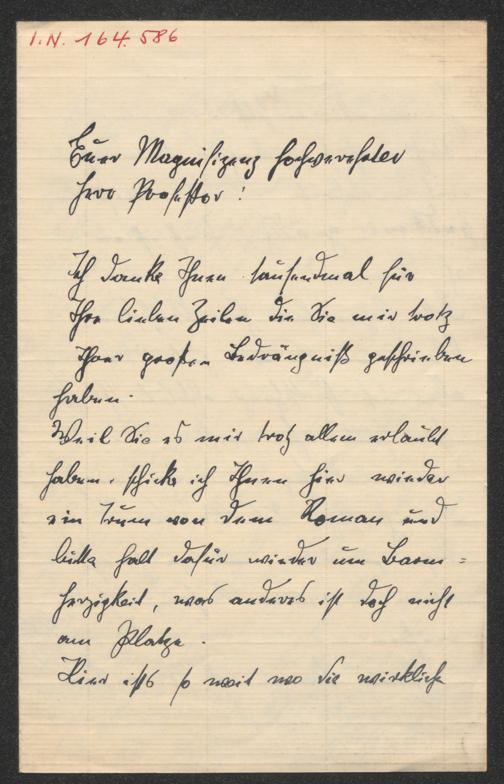 I.N. 164.586
Euer Magnifizenz hochverehrter
Herr Professor!
Ich danke Ihnen tausendmal für
Ihre lieben Zeilen die Sie mir trotz
Ihrer großen Bedrängniß geschrieben
haben.
Weil Sie es mir trotz allem erlaubt
haben, schicke ich Ihnen hier wieder
ein Trum von dem Roman und
bitte halt dafür wieder um Barm=
herzigkeit, was anderes ist doch nicht
am Platze.
Hier ists so weit wo die wirklich